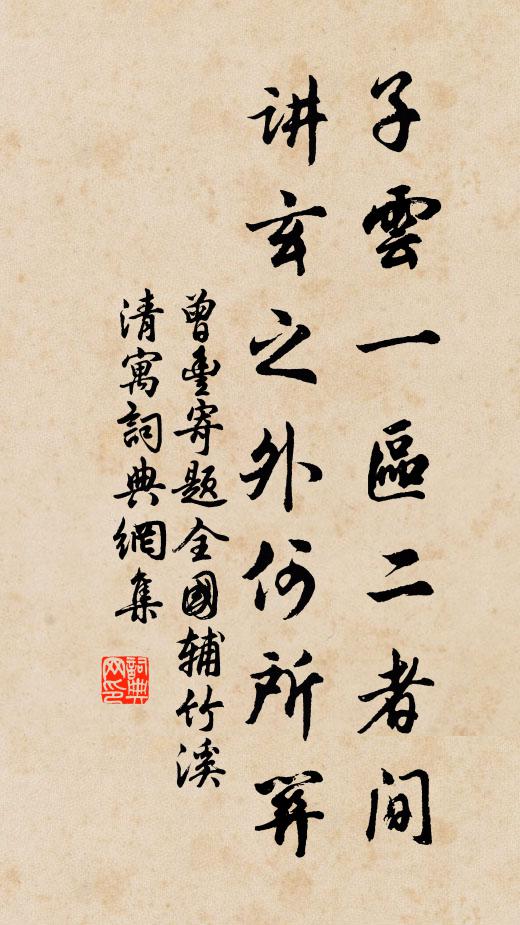 子雲一區二者間
讲玄之外何所
曾豐寄题全國辅竹溪
清寓詞典網集
詞典
网印